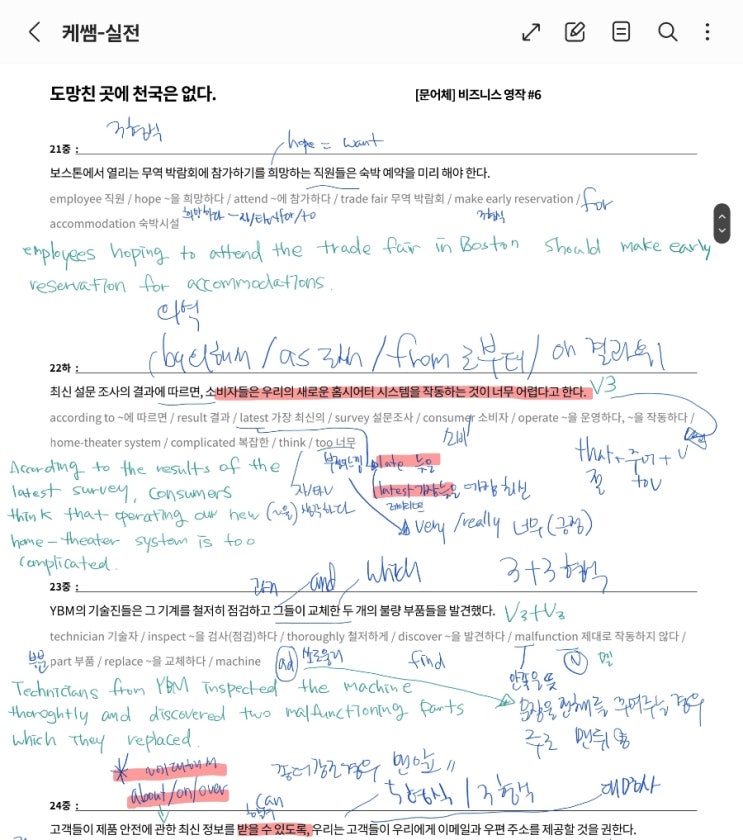 케쌤-실전
도망친 곳에 천국은 없다.
[문어체] 비즈니스 영작 #6
3형식
hope = want
21중 :
보스톤에서 열리는 무역 박람회에 참가하기를 희망하는 직원들은 숙박 예약을 미리 해야 한다.
employee 직원 / hope ~을 희망하다 / attend ~에 참가하다 / trade fair 무역 박람회 / make early reservation / for
accommodation 숙박시설
희망하다
3형식
employees hoping to attend the trade fair in Boston should make early
reservation for accommodations.
의역
as / from 로부터 / on
22하 :
최신 설문 조사의 결과에 따르면, 소비자들은 우리의 새로운 홈시어터 시스템을 작동하는 것이 너무 어렵다고 한다. V3
according to ~에 따르면 / result 결과 / latest 가장 최신의 / survey 설문조사 / consumer 소비자 / operate ~을 운영하다, ~을 작동하다 /
home-theater system / complicated 복잡한 / think / too 너무
late 늦은
that + 주어 + V
절 toV
latest 가장 늦은 가장 최신
very / really 너무 (긍정)
According to the results of the
latest survey, consumers
think that operating our new
home-theater system is too
complicated.
and which 3+3형식
23중 :
YBM의 기술진들은 그 기계를 철저히 점검하고 그들이 교체한 두 개의 불량 부품들을 발견했다. V3+V3
technician 기술자 / inspect ~을 검사(점검)하다 / thoroughly 철저하게 / discover ~을 발견하다 / malfunction 제대로 작동하지 않다 /
part 부품 / replace ~을 교체하다 / machine
ad find
Technicians from YBM inspected the machine
thoroghtly and discovered two malfunctioning parts
which they replaced.
about/on/over
can
대명사
24중 :
고객들이 제품 안전에 관한 최신 정보를 받을 수 있도록, 우리는 고객들이 우리에게 이메일과 우편 주소를 제공할 것을 권한다.